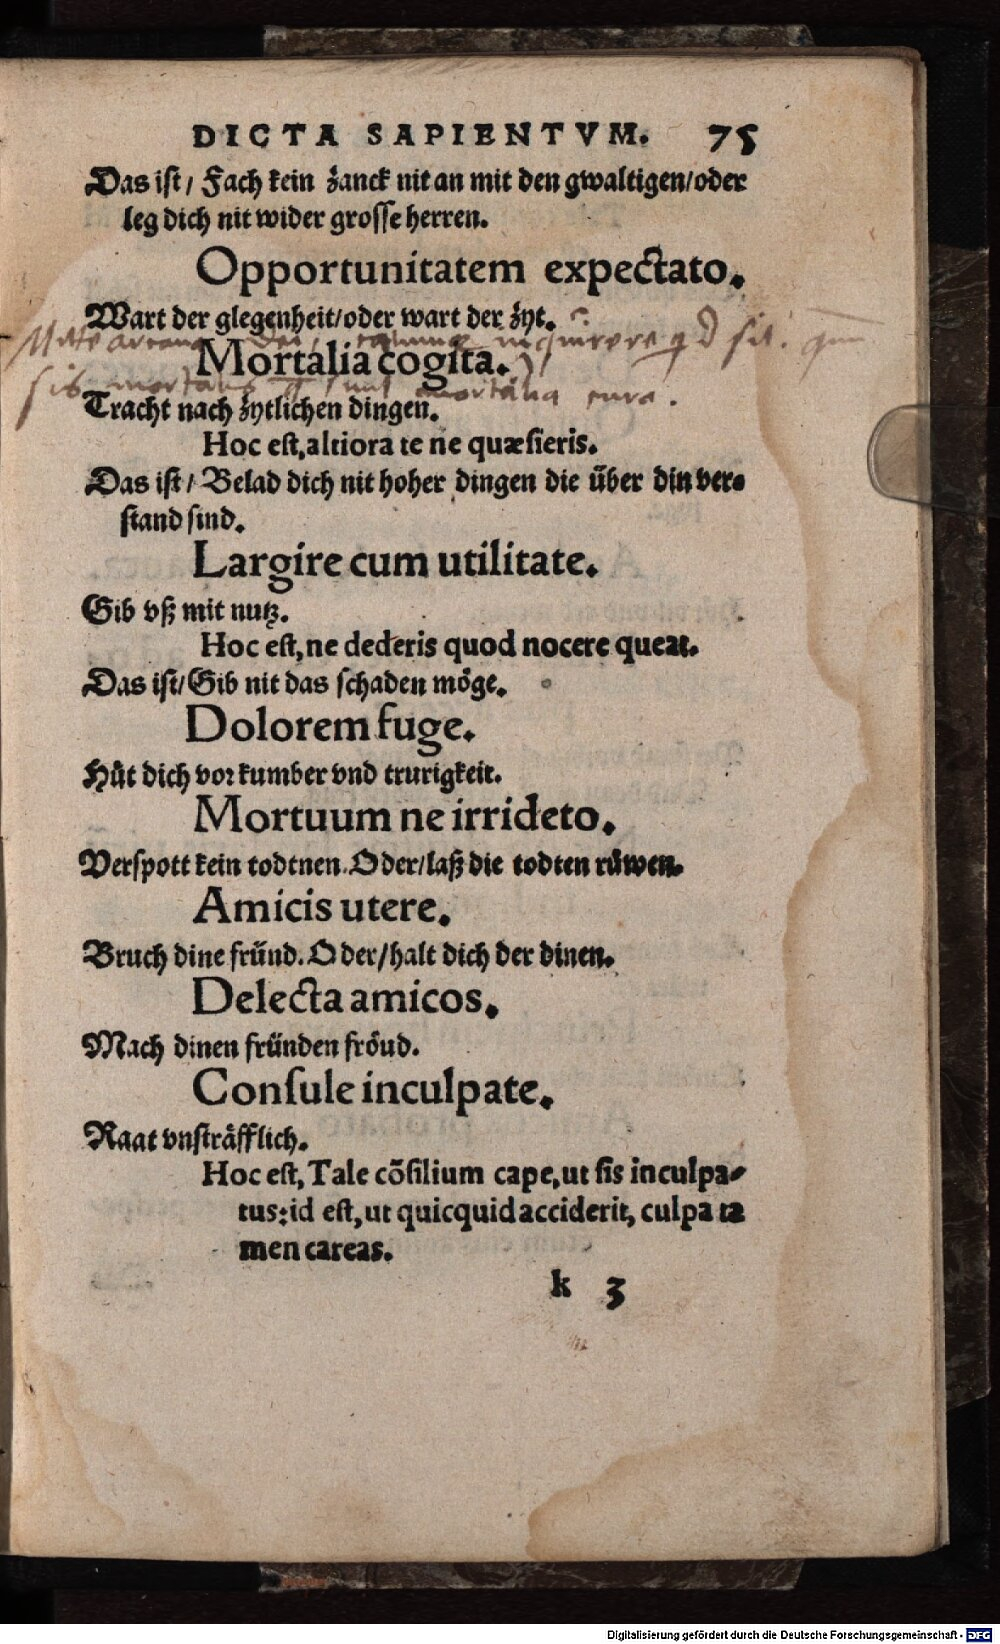 DICTA SAPIENTVM. 75
Das ist/ Fach kein zanck nit an mit den gwaltigen/oder
leg dich nit wider grosse herren.
Opportunitatem expectato.
Wart der glegenheit/oder wart der zyt.
Mitte arcana Dei, cœlumq inquirere qd sit. qum
Mortalia cogita.
sis mortalis q sunt mortalia cura.
Tracht nach zytlichen dingen.
Hoc est, altiora te ne quæsieris.
Das ist/ Belad dich nit hoher dingen die über din ver-
stand sind.
Largire cum utilitate.
Gib vß mit nutz.
Hoc est, ne dederis quod nocere queat.
Das ist/ Gib nit das schaden möge.
Dolorem fuge.
Hůt dich vor kumber vnd trurigkeit.
Mortuum ne irrideto.
Verspott kein todtnen. Oder/laß die todten růwen.
Amicis utere.
Bruch dine fründ. Oder/halt dich der dinen.
Delecta amicos.
Mach dinen fründen fröud.
Consule inculpate.
Raat vnsträfflich.
Hoc est, Tale cõsilium cape, ut sis inculpa-
tus: id est, ut quicquid acciderit, culpa ta
men careas.
k 3
Digitalisierung gefördert durch die Deutsche Forschungsgemeinschaft - DFG